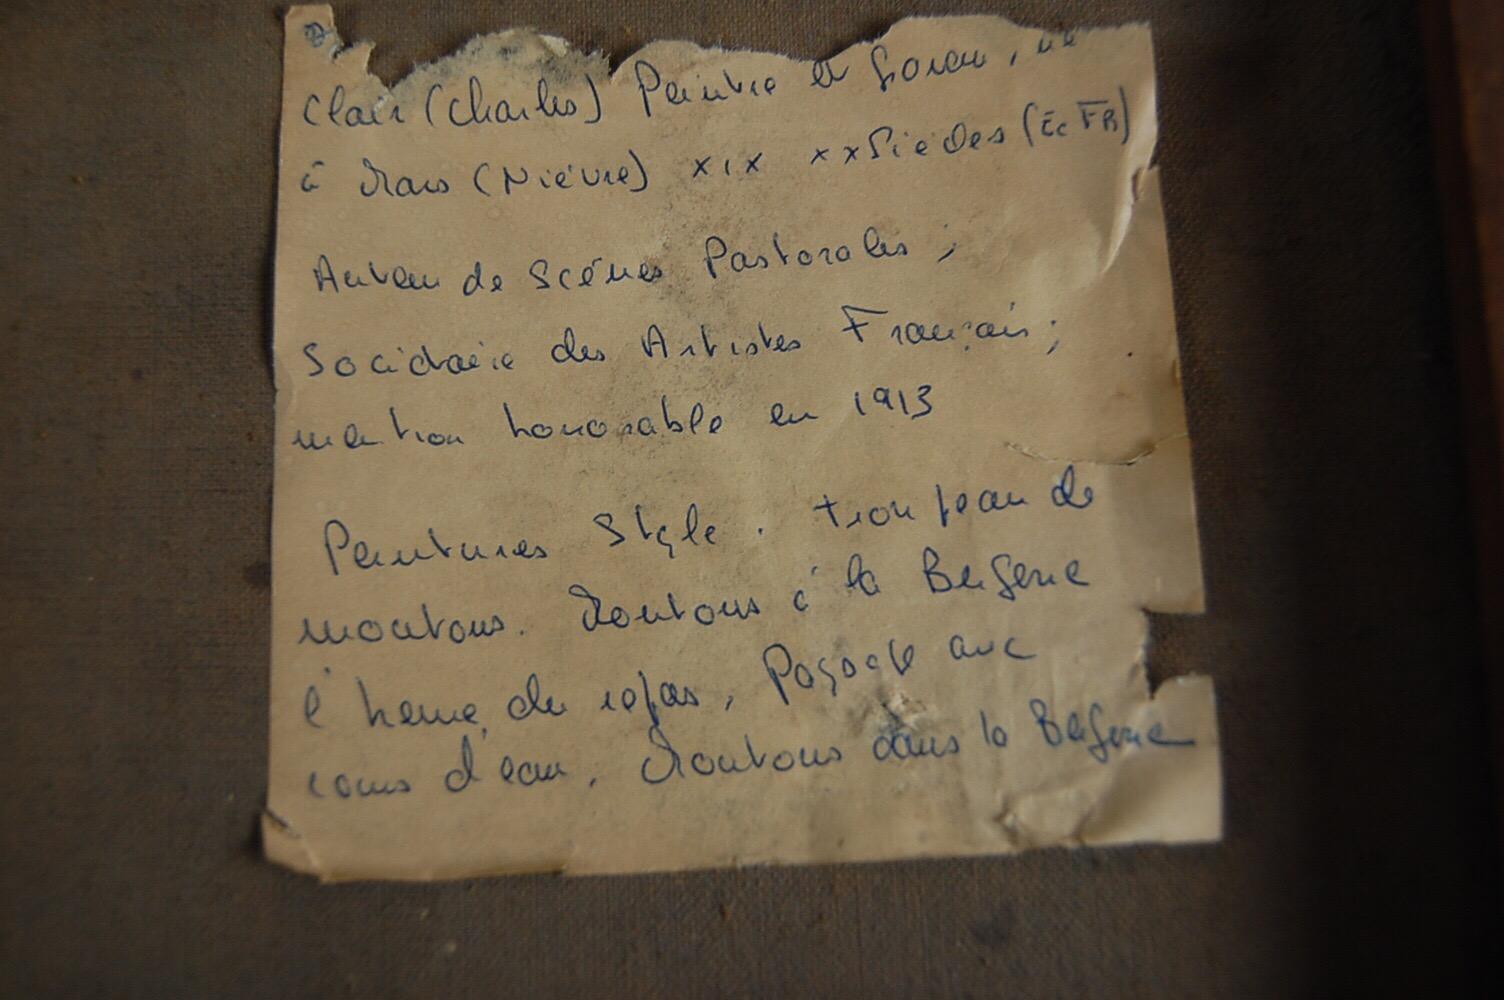 Clair (Charles) Peintre et Graveur, né
à Mars (Nièvre) XIX XX Siècles (Ec FR)
Auteur de Scénes Pastorales ;
Sociétaire des Artistes Français ;
mention honorable en 1913
Peintures Style . troupeau de
moutons. Moutons à la Bergerie
l'heure du repas, Paysage avec
cours d'eau. Moutons dans la Bergerie